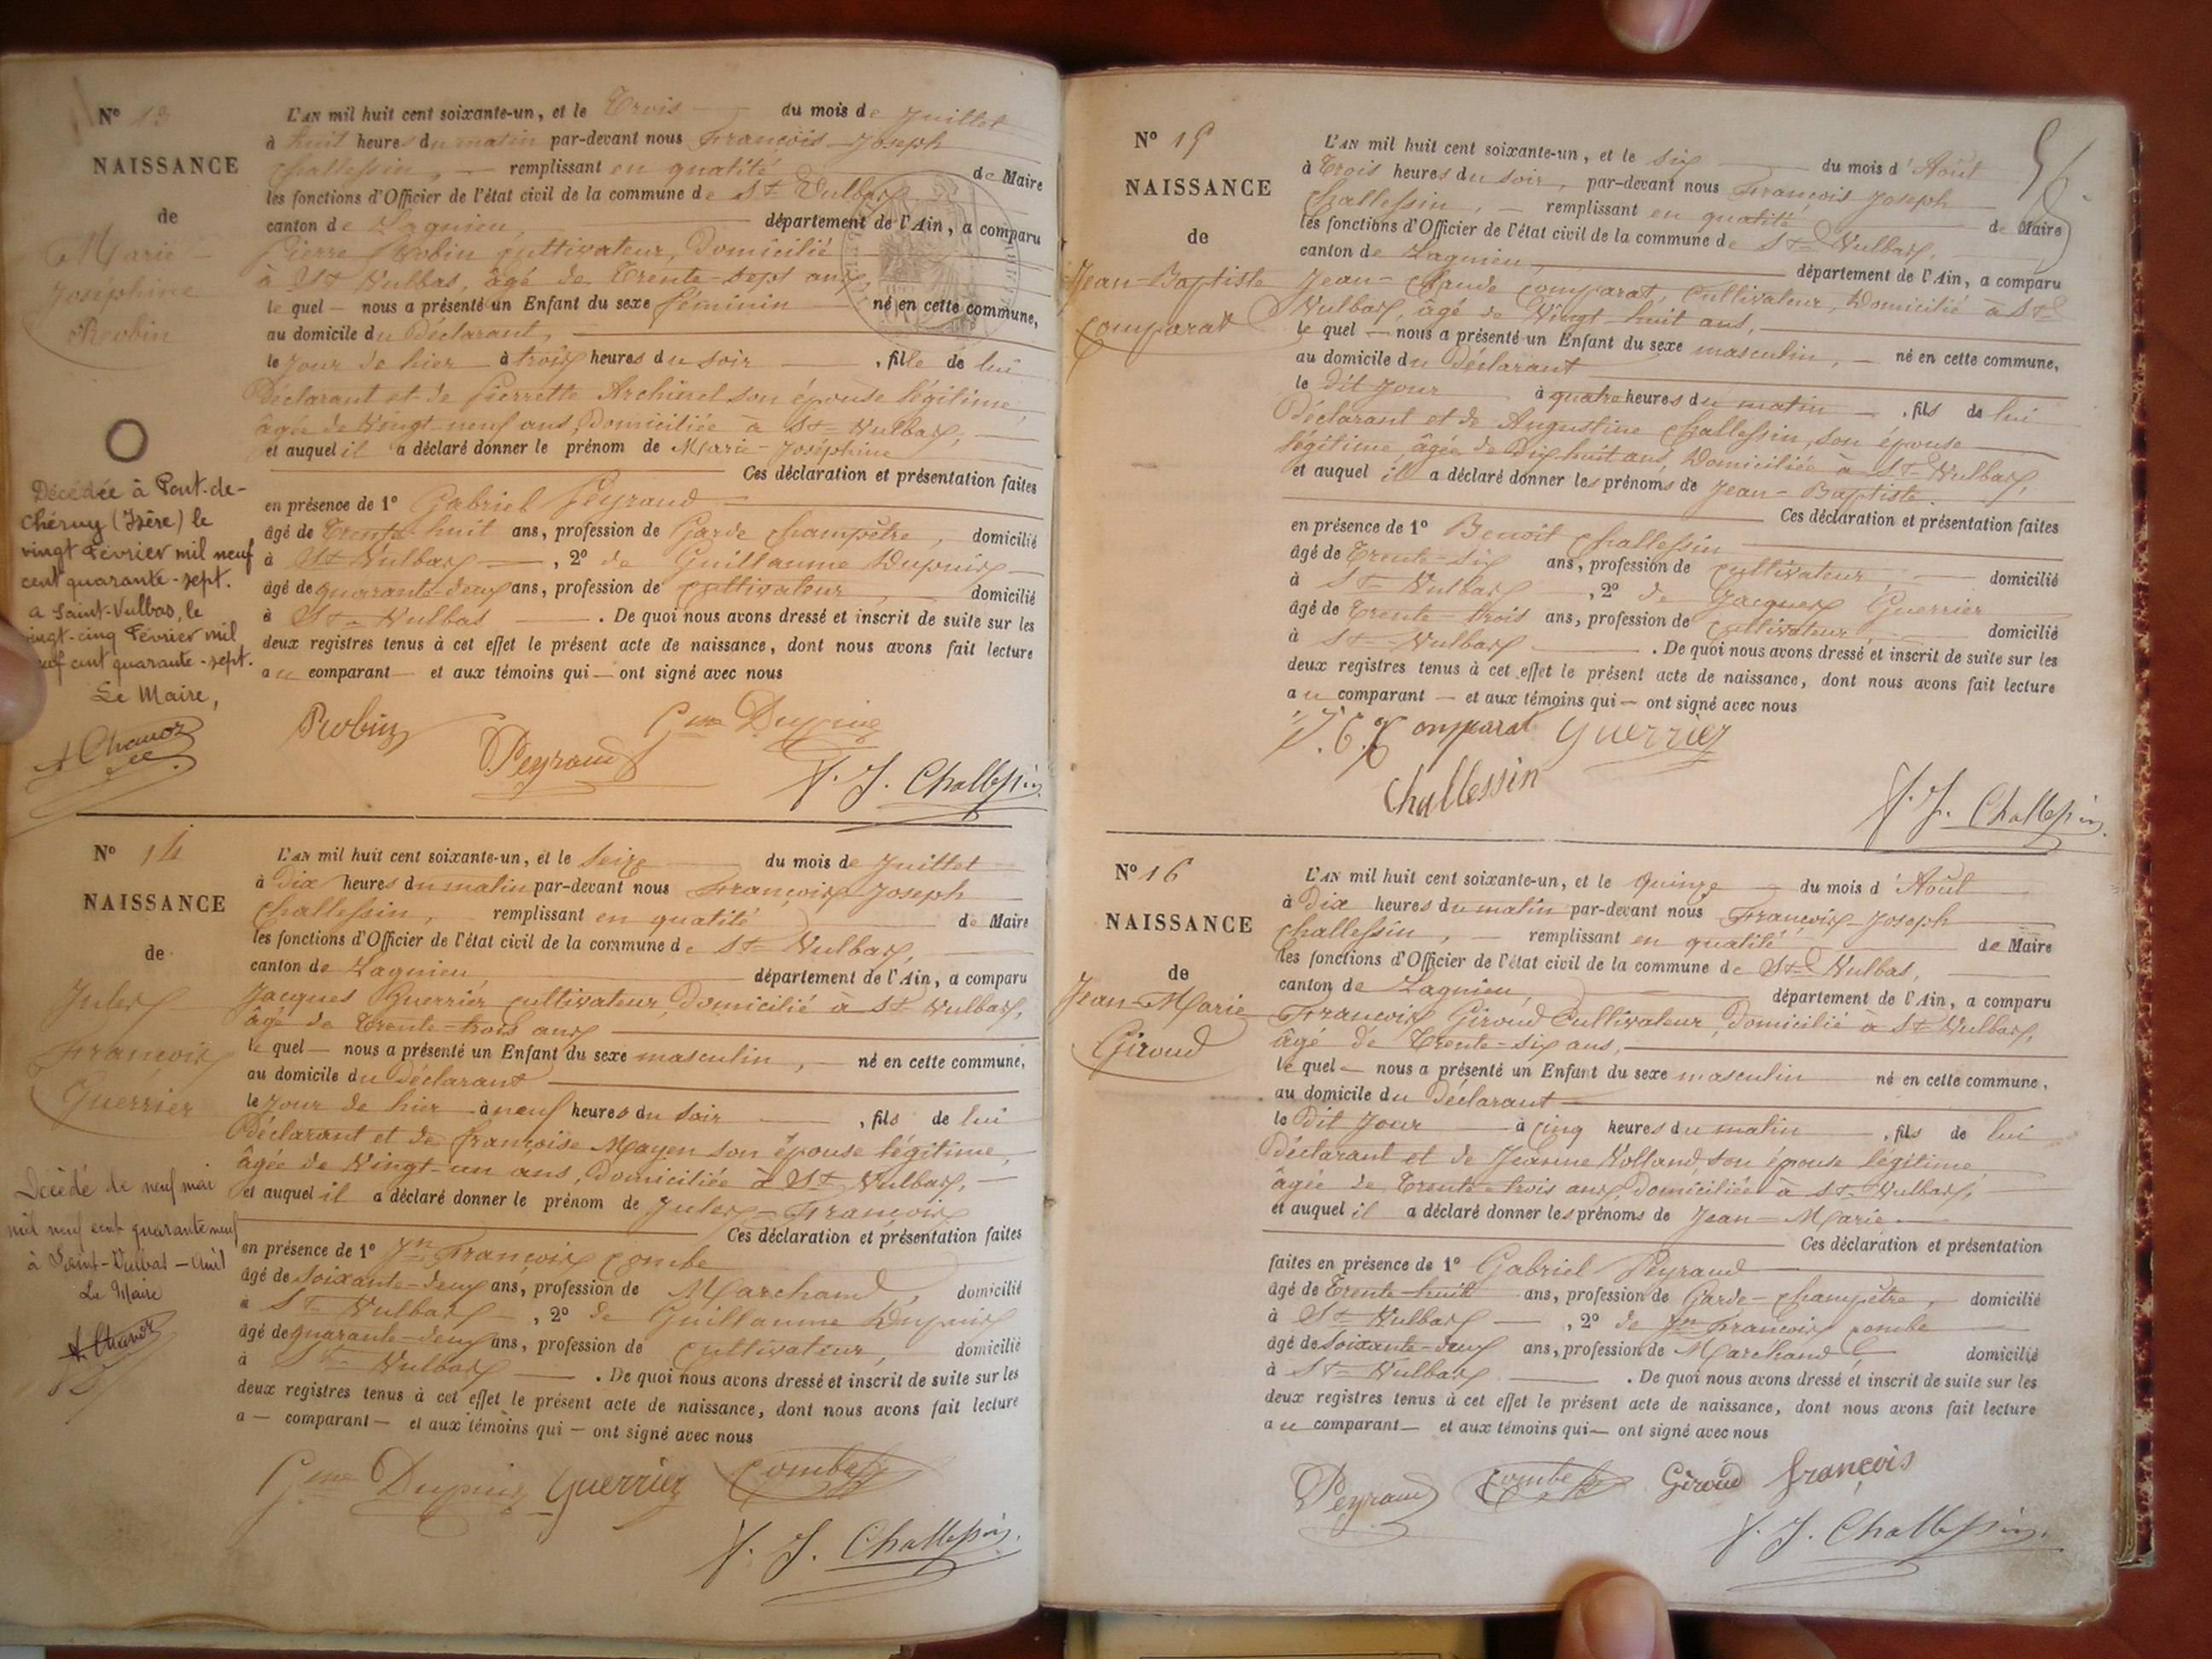 N° 13
NAISSANCE
de
Marie
Joséphine
Robin
Décédée à Pont-de-
Chéruy (Isère) le
vingt Février mil neuf
cent quarante-sept.
a Saint-Vulbas, le
vingt-cinq Février mil
neuf cent quarante-sept.
Le Maire,
A Chanoz
L'AN mil huit cent soixante-un, et le Trois du mois de Juillet
à huit heures du matin par-devant nous François-Joseph
Challessin, remplissant en qualité de Maire
les fonctions d'Officier de l'état civil de la commune de St Vulbas
canton de Lagnieu, département de l'Ain, a comparu
Pierre Robin cultivateur, Domicilié
à St Vulbas, âgé de Trente-sept ans,
le quel nous a présenté un Enfant du sexe féminin né en cette commune,
au domicile du Déclarant,
le jour de hier à trois heures du soir , fille de lui
Déclarant et de Pierrette Archinet son épouse légitime,
âgée de Vingt-neuf ans, Domiciliée à St Vulbas,
et auquel il a déclaré donner le prénom de Marie-Joséphine
Ces déclaration et présentation faites
en présence de 1° Gabriel Peyraud
âgé de Trente-huit ans, profession de Garde champêtre, domicilié
à St Vulbas , 2° de Guillaume Dupuis
âgé de quarante-deux ans, profession de cultivateur, domicilié
à St Vulbas . De quoi nous avons dressé et inscrit de suite sur les
deux registres tenus à cet effet le présent acte de naissance, dont nous avons fait lecture
au comparant et aux témoins qui ont signé avec nous
Robin Gme Dupuis
Peyraud
F. J. Challessin
N° 14
NAISSANCE
de
Jules
François
Guerrier
Décédé le neuf mai
mil neuf cent quarante neuf
à Saint-Vulbas - Ain
Le Maire
A. Chanoz
L'AN mil huit cent soixante-un, et le Seize du mois de Juillet
à Dix heures du matin par-devant nous François-Joseph
Challessin, remplissant en qualité de Maire
les fonctions d'Officier de l'état civil de la commune de St Vulbas,
canton de Lagnieu département de l'Ain, a comparu
Jacques Guerrier cultivateur, Domicilié à St Vulbas,
âgé de Trente-trois ans
le quel nous a présenté un Enfant du sexe masculin, né en cette commune,
au domicile du Déclarant
le jour de hier à neuf heures du soir , fils de lui
Déclarant et de françoise Mayen son épouse légitime,
âgée de Vingt-un ans, Domiciliée à St Vulbas,
et auquel il a déclaré donner le prénom de Jules-François
Ces déclaration et présentation faites
en présence de 1° Jn François Combe
âgé de Soixante-deux ans, profession de Marchand, domicilié
à St Vulbas , 2° de Guillaume Dupuis
âgé de quarante-deux ans, profession de cultivateur, domicilié
à St Vulbas . De quoi nous avons dressé et inscrit de suite sur les
deux registres tenus à cet effet le présent acte de naissance, dont nous avons fait lecture
a comparant et aux témoins qui ont signé avec nous
Gme Dupuis Guerrier Combe
F. J. Challessin
N° 15
NAISSANCE
de
Jean-Baptiste
Comparat
L'AN mil huit cent soixante-un, et le Six du mois d'Août
à Trois heures du soir, par-devant nous François Joseph
Challessin, remplissant en qualité de Maire
les fonctions d'Officier de l'état civil de la commune de St Vulbas,
canton de Lagnieu, département de l'Ain, a comparu
Jean-Claude Comparat, cultivateur, Domicilié à St
Vulbas, âgé de Vingt-huit ans,
le quel nous a présenté un Enfant du sexe masculin, né en cette commune,
au domicile du Déclarant
le dit jour à quatre heures du matin , fils de lui
Déclarant et de Augustine Challessin, son épouse
légitime, âgée de Dix-huit ans, Domiciliée à St Vulbas,
et auquel il a déclaré donner les prénoms de Jean-Baptiste.
Ces déclaration et présentation faites
en présence de 1° Benoit Challessin
âgé de Trente-six ans, profession de cultivateur, domicilié
à St Vulbas , 2° de Jacques Guerrier
âgé de Trente-trois ans, profession de cultivateur domicilié
à St Vulbas . De quoi nous avons dressé et inscrit de suite sur les
deux registres tenus à cet effet le présent acte de naissance, dont nous avons fait lecture
au comparant et aux témoins qui ont signé avec nous
J. C. Comparat Guerrier
Challessin
F. J. Challessin
N° 16
NAISSANCE
de
Jean-Marie
Giroud
L'AN mil huit cent soixante-un, et le Quinze du mois d'Août
à Dix heures du matin par-devant nous François-Joseph
Challessin, remplissant en qualité de Maire
les fonctions d'Officier de l'état civil de la commune de St Vulbas,
canton de Lagnieu, département de l'Ain, a comparu
François Giroud Cultivateur, Domicilié à St Vulbas,
âgé de Trente-six ans,
le quel nous a présenté un Enfant du sexe masculin né en cette commune,
au domicile du Déclarant
le Dit Jour à cinq heures du matin , fils de lui
Déclarant et de Jeanne Volland, son épouse légitime,
âgée de Trente-trois ans, Domiciliée à St Vulbas,
et auquel il a déclaré donner les prénoms de Jean-Marie
Ces déclaration et présentation
faites en présence de 1° Gabriel Peyraud
âgé de Trente-huit ans, profession de Garde-champêtre, domicilié
à St Vulbas , 2° de Jn François Combe
âgé de Soixante-deux ans, profession de Marchand domicilié
à St Vulbas . De quoi nous avons dressé et inscrit de suite sur les
deux registres tenus à cet effet le présent acte de naissance, dont nous avons fait lecture
au comparant et aux témoins qui ont signé avec nous
Peyraud Combe Giroud François
F. J. Challessin